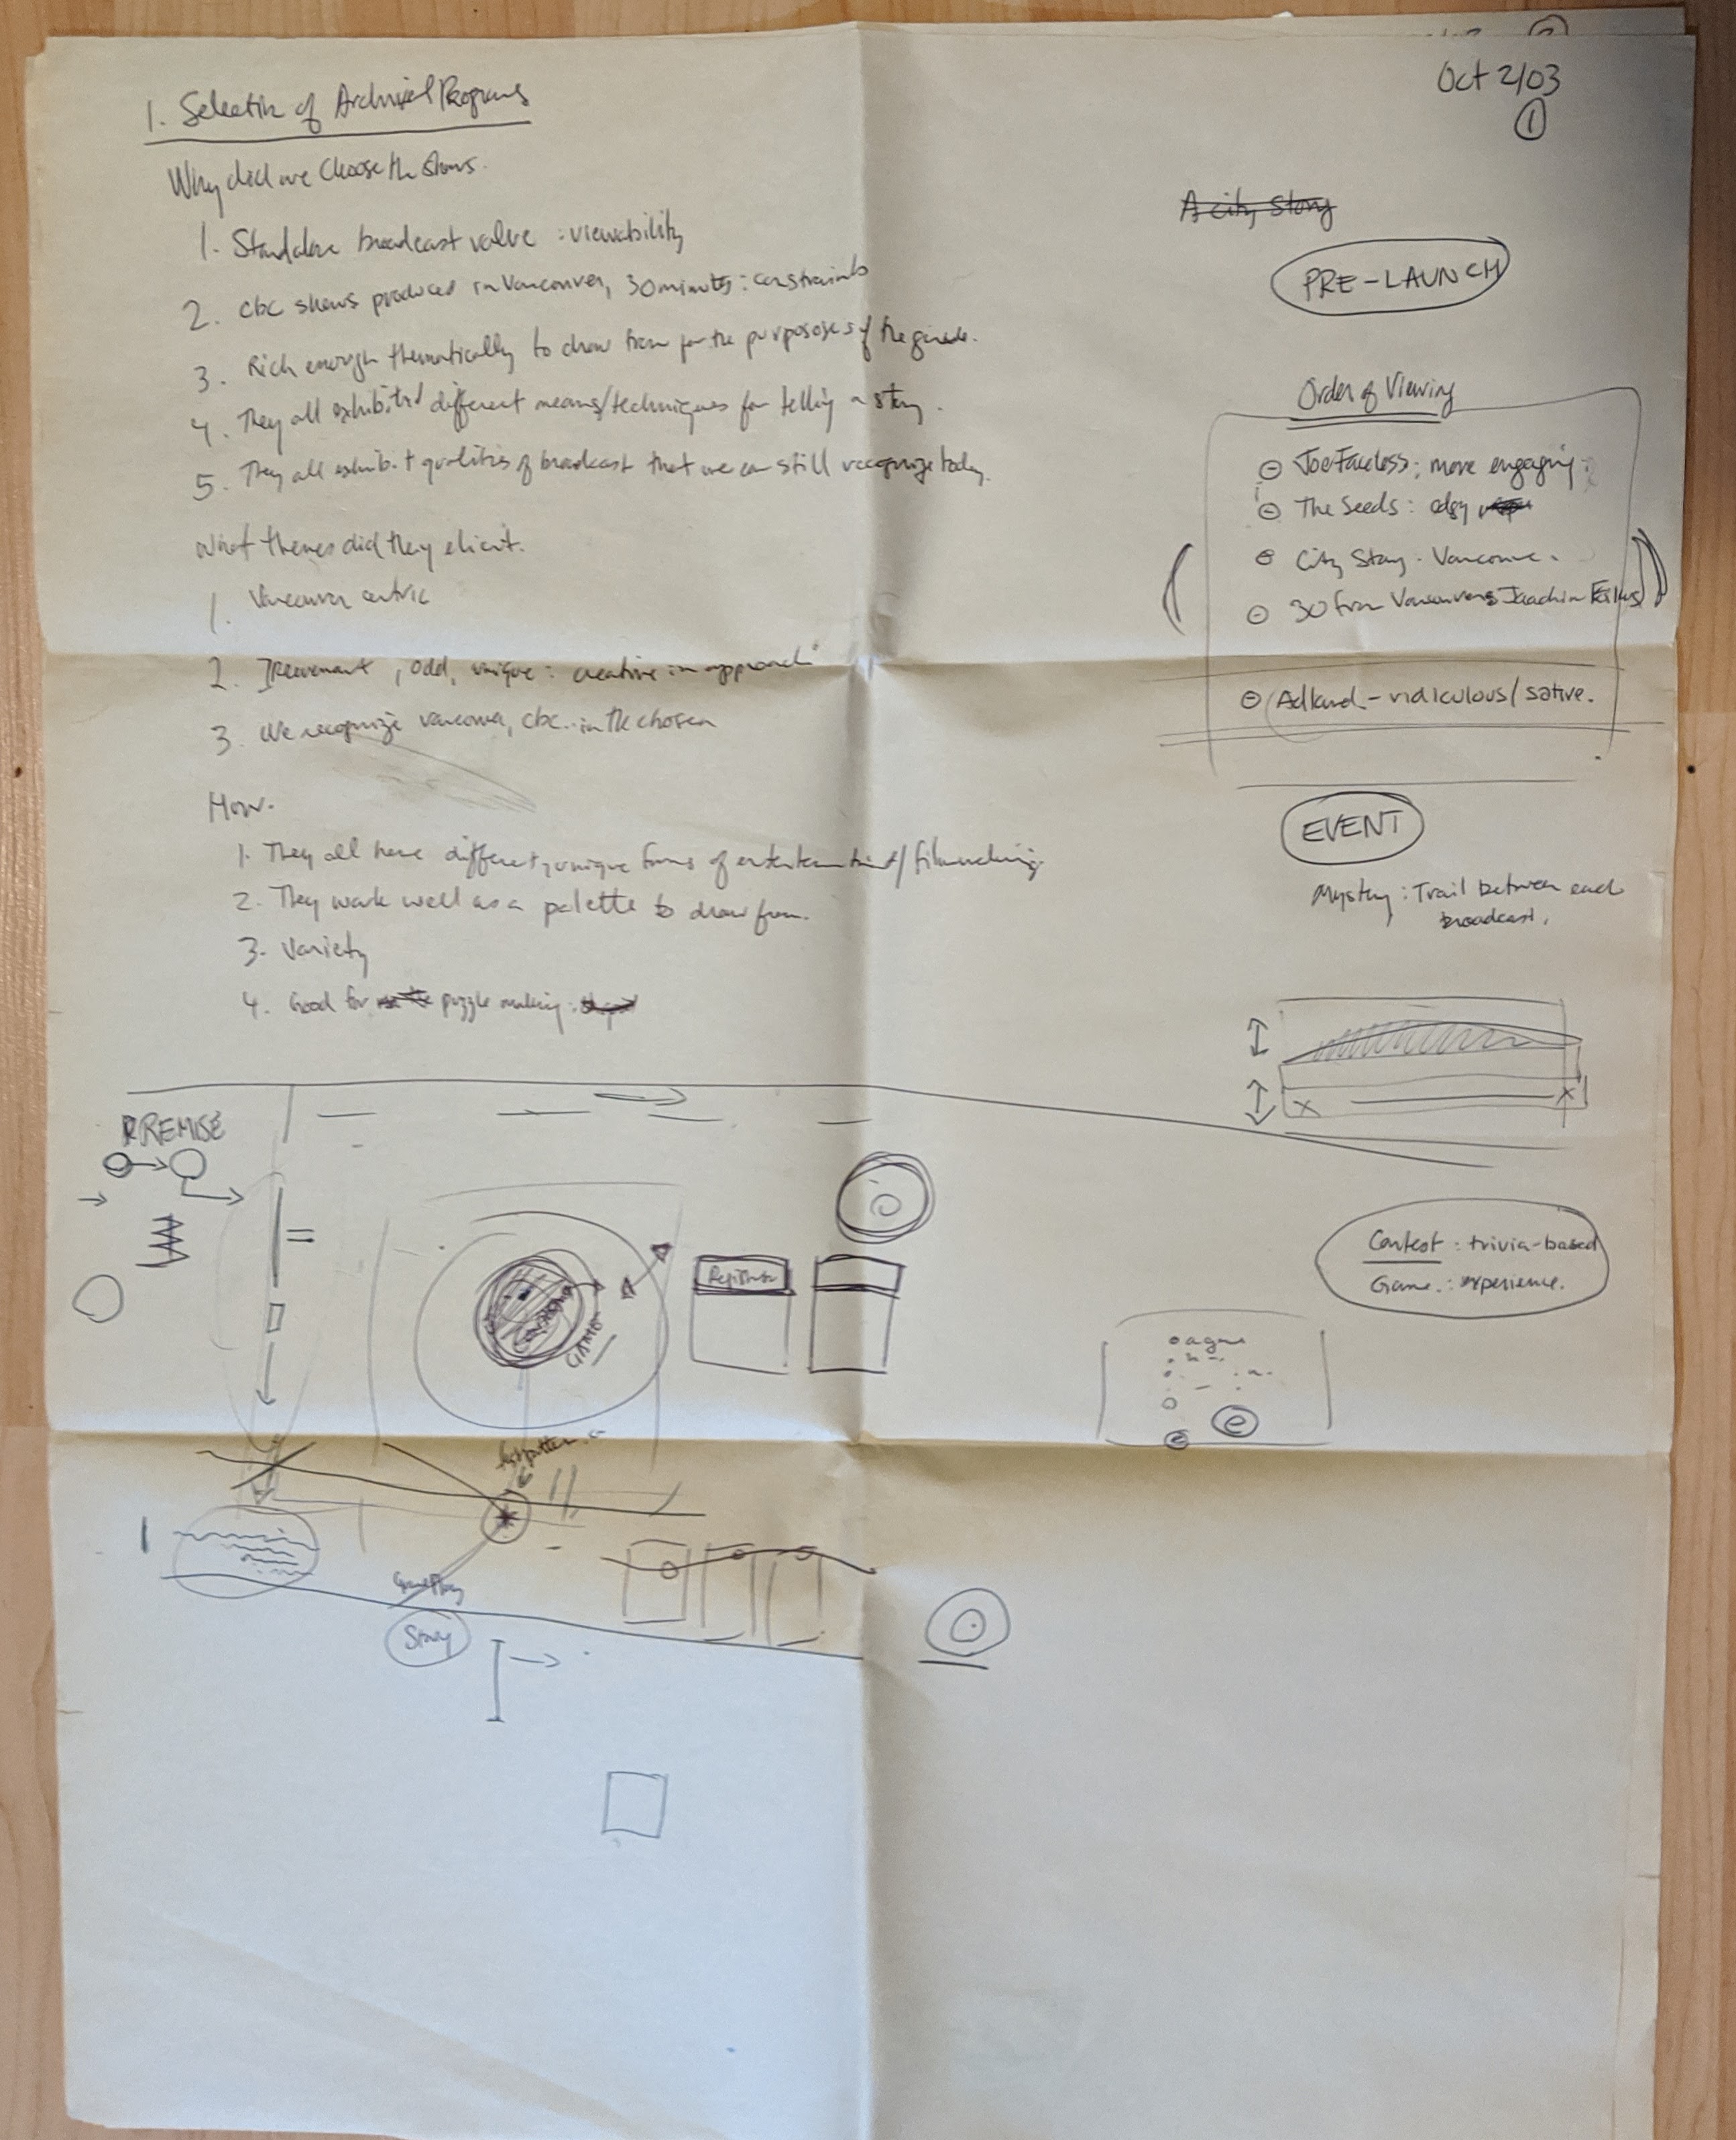 Oct 2/03
1
1. Selection of Archival Programs
Why did we choose the shows.
1. Standalone broadcast value : viewability
2. cbc shows produced in Vancouver, 30 minutes : constraints
3. Rich enough thematically to draw from for the purposes of the game.
4. They all exhibited different means/techniques for telling a story.
5. They all exhibit qualities of broadcast that we can still recognize today.
What themes did they elicit.
1. Vancouver centric
2. Irreverant, odd, unique : creative in approach
3. We recognize vancouver, cbc.. in the chosen
How.
1. They all have different, unique forms of entertainment/filmmaking.
2. They work well as a palette to draw from.
3. Variety
4. Good for puzzle making :
A city Story
PRE-LAUNCH
Order of Viewing
Joe Faceless : more engaging
The Seeds : edgy
City Story - Vancouver.
30 from Vancouver: Joachim
- ridiculous/satire.
EVENT
Mystery : Trail between each
broadcast.
Contest : trivia-based
Game : experience.
PREMISE
GAME
Register
Gameplay
Story
e
e